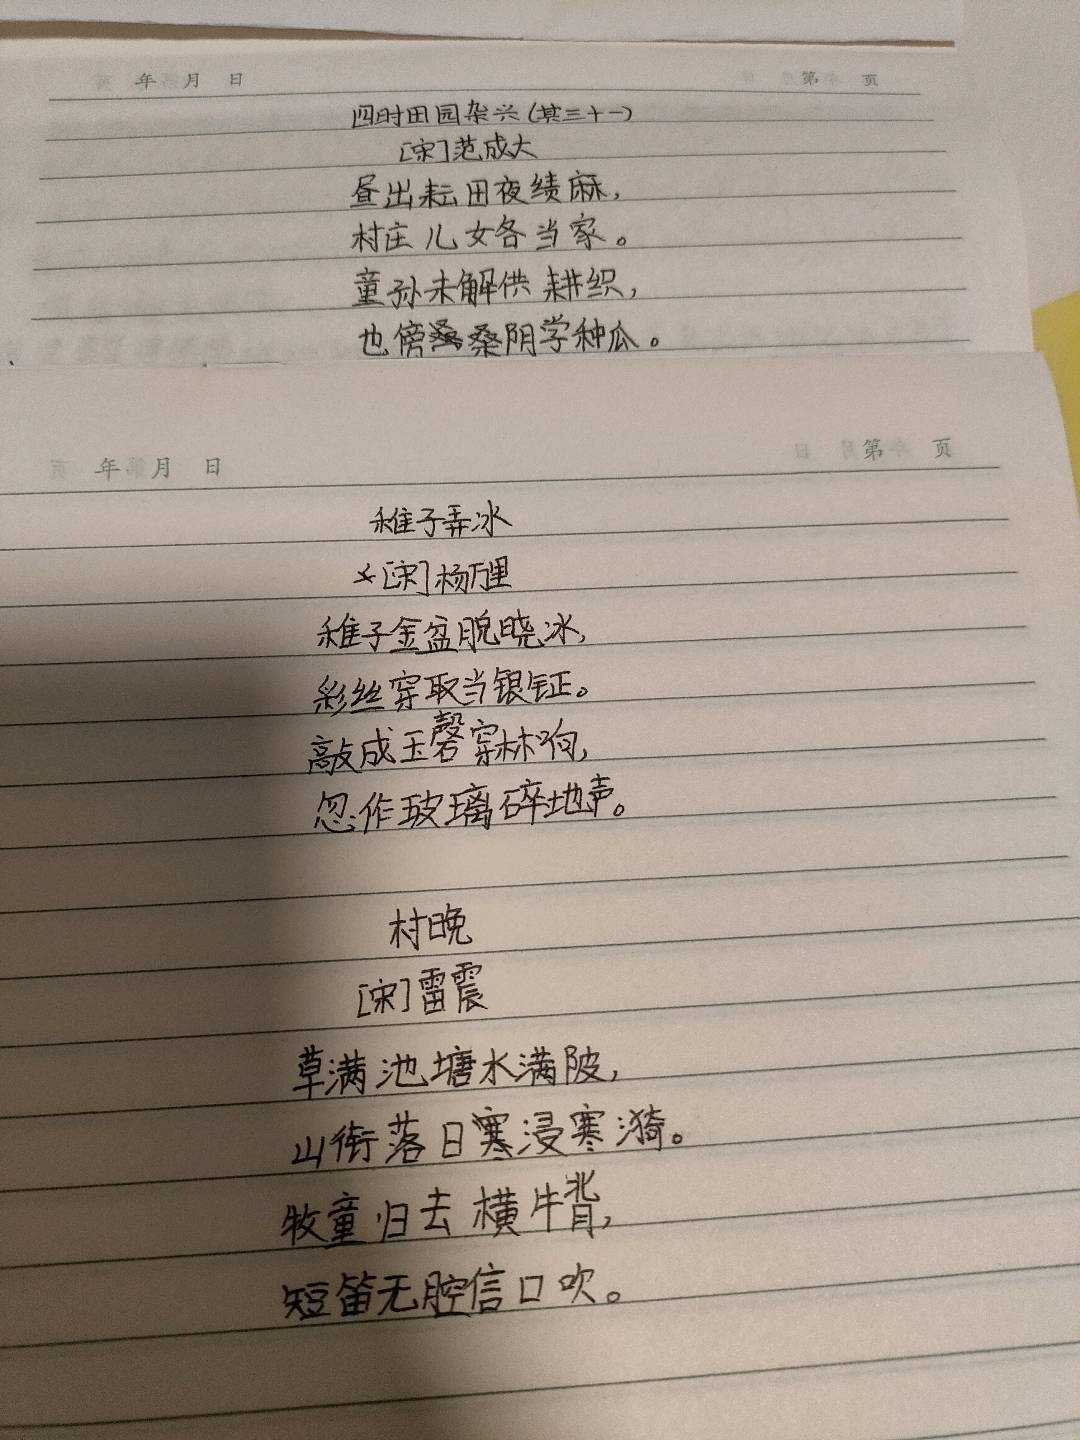 年 月 日 第 页
四时田园杂兴(其三十一)
[宋]范成大
昼出耘田夜绩麻,
村庄儿女各当家。
童孙未解供耕织,
也傍桑阴学种瓜。
年 月 日 第 页
稚子弄冰
[宋]杨万里
稚子金盆脱晓冰,
彩丝穿取当银钲。
敲成玉磬穿林响,
忽作玻璃碎地声。
村晚
[宋]雷震
草满池塘水满陂,
山衔落日寒浸寒漪。
牧童归去横牛背,
短笛无腔信口吹。